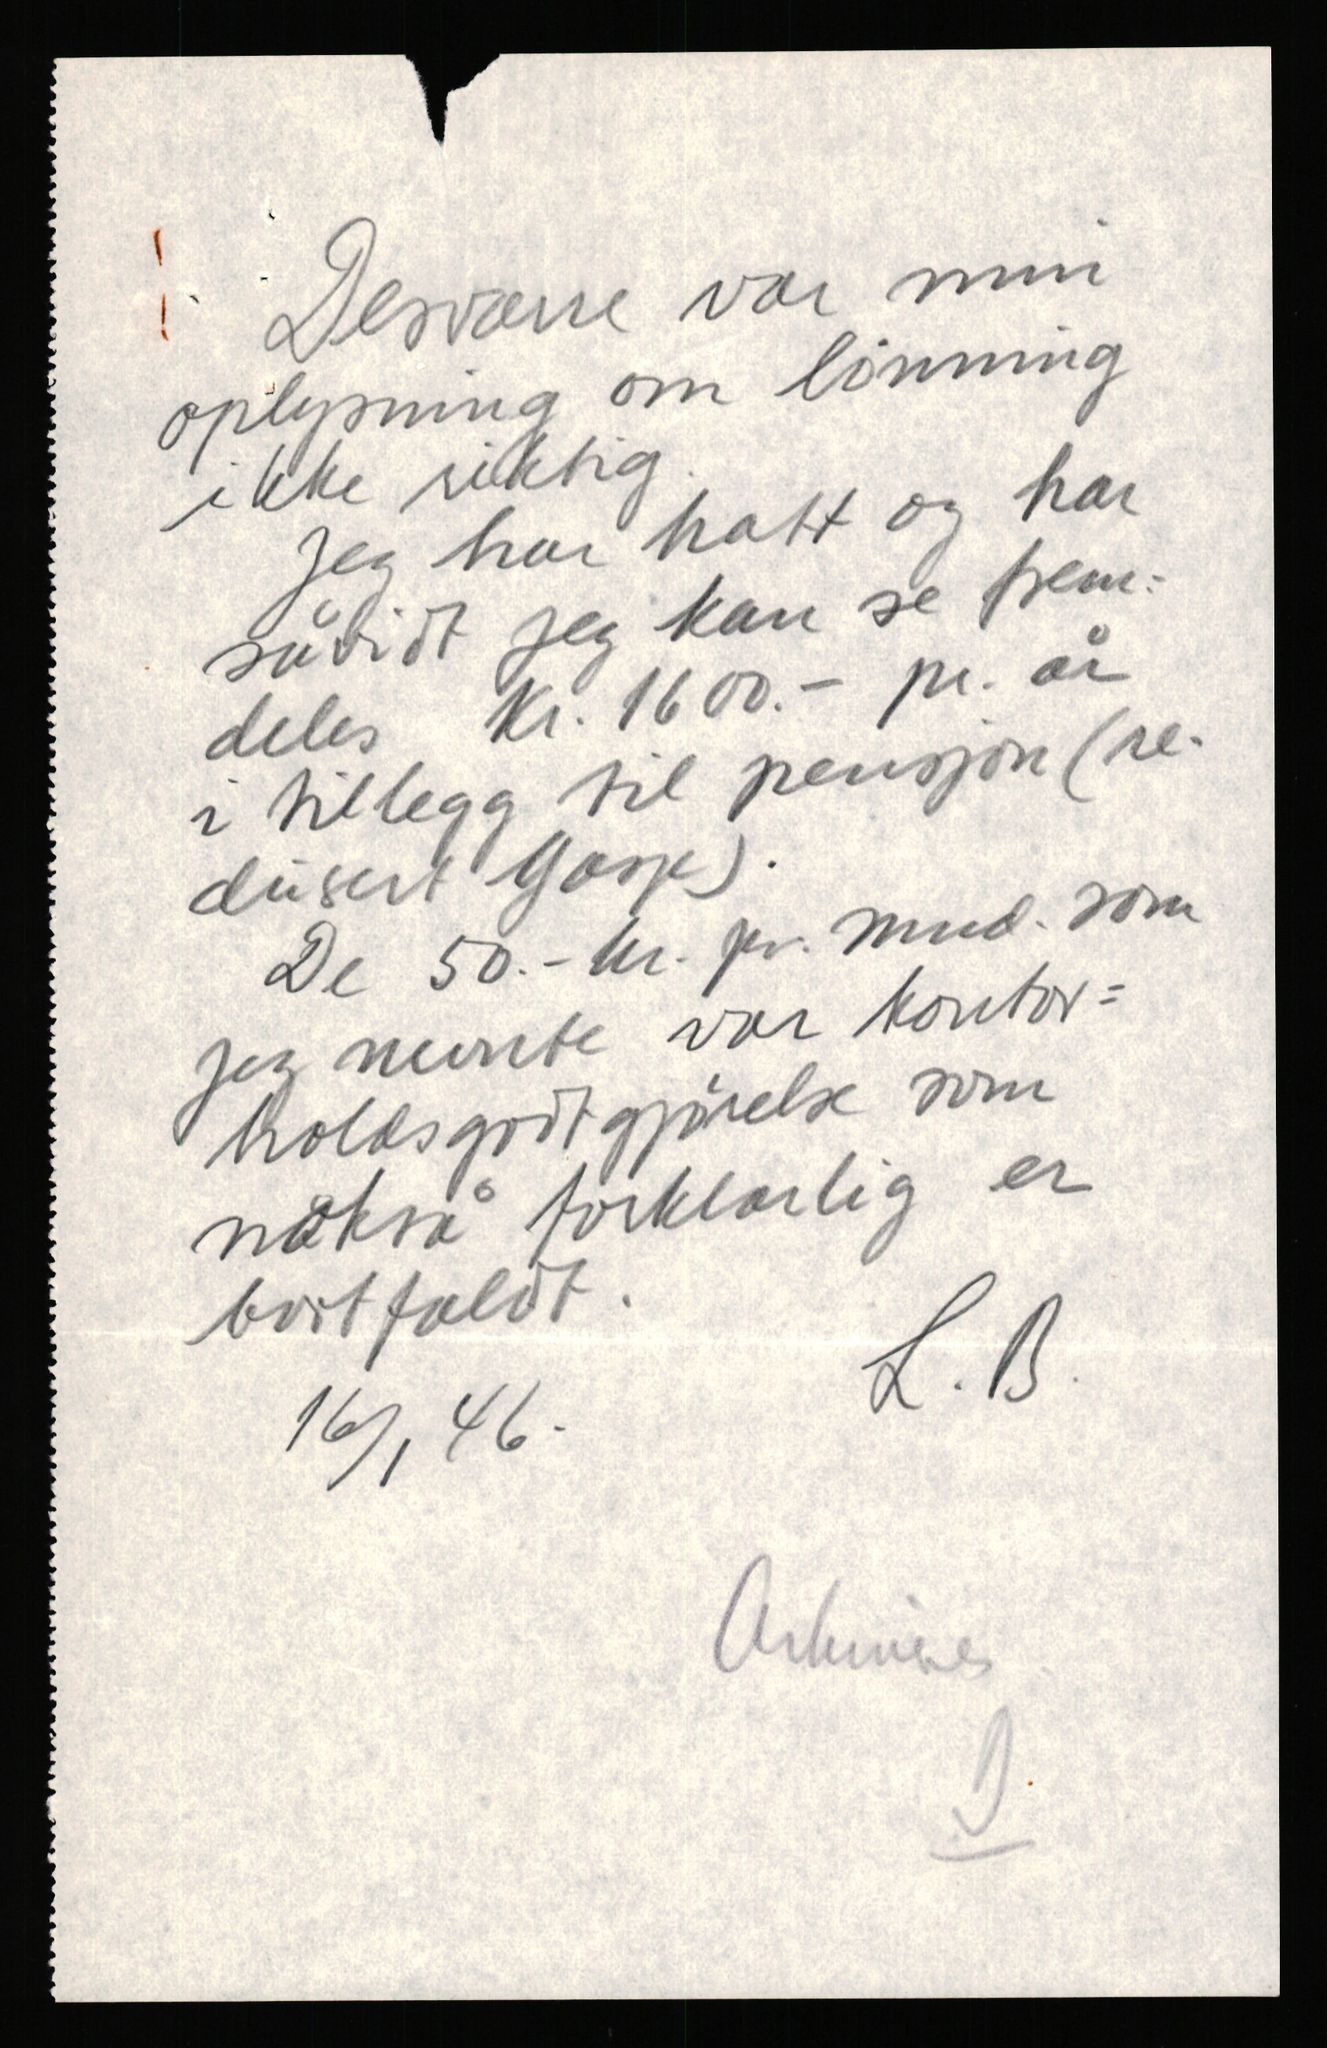 Desværre var min
oplysning om lönning
ikke riktig.
Jeg har hatt og har
såvidt jeg kan se frem-
deles kr. 1600.- pr. år
i tillegg til pensjon (re-
dusert Gasje).
De 50.- kr. pr. mnd. som
jeg nevnte var kontor=
holdsgodtgjörelse som
nokså forklarlig er
bortfaldt.
L. B.
16/1 46.
Arkiveres